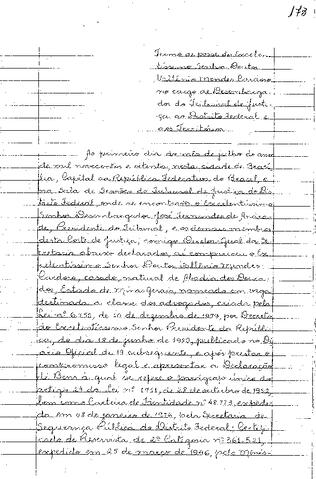 173
Termo de posse do Excelen-
tíssimo Senhor Doutor
Mendes Cardoso
no cargo de Desembarga-
dor do Tribunal de Justi-
ça do Distrito Federal e
dos Territórios.
Ao primeiro dia do mês de julho do ano
de mil novecentos e oitenta, nesta cidade de Brasí-
lia, Capital da República Federativa do Brasil, e
na Sala de Sessões do Tribunal de Justiça do Dis-
trito Federal, onde se encontrava o Excelentíssimo
Senhor Desembargador José Fernandes de Andra-
de, Presidente do Tribunal, e os demais membros
desta Corte de Justiça, comigo Diretor Geral da Se-
cretaria abaixo declarado, aí compareceu o Ex-
celentíssimo Senhor Doutor Mendes
Cardoso, casado, natural de Abadia dos Doura-
dos, Estado de Minas Gerais, nomeado em vaga
destinada à classe dos advogados, criada pela
Lei nº 6.750, de 10 de dezembro de 1979, por Decreto
do Excelentíssimo Senhor Presidente da Repúbli-
ca, de dia 18 de junho de 1980, publicado no Di-
ário Oficial de 19 subsequente, e após prestar o
compromisso legal e apresentar a Declaração
de Bens à qual se refere o parágrafo único do
artigo da Lei nº 1.711, de 28 de outubro de 1952,
bem como Carteira de Identidade nº expedi-
da em 08 de janeiro de 1976, pela Secretaria de
Segurança Pública do Distrito Federal; Certifi-
cado de Reservista, de 2ª Categoria nº 361.521,
expedido em 25 de março de 1946, pelo Minis-